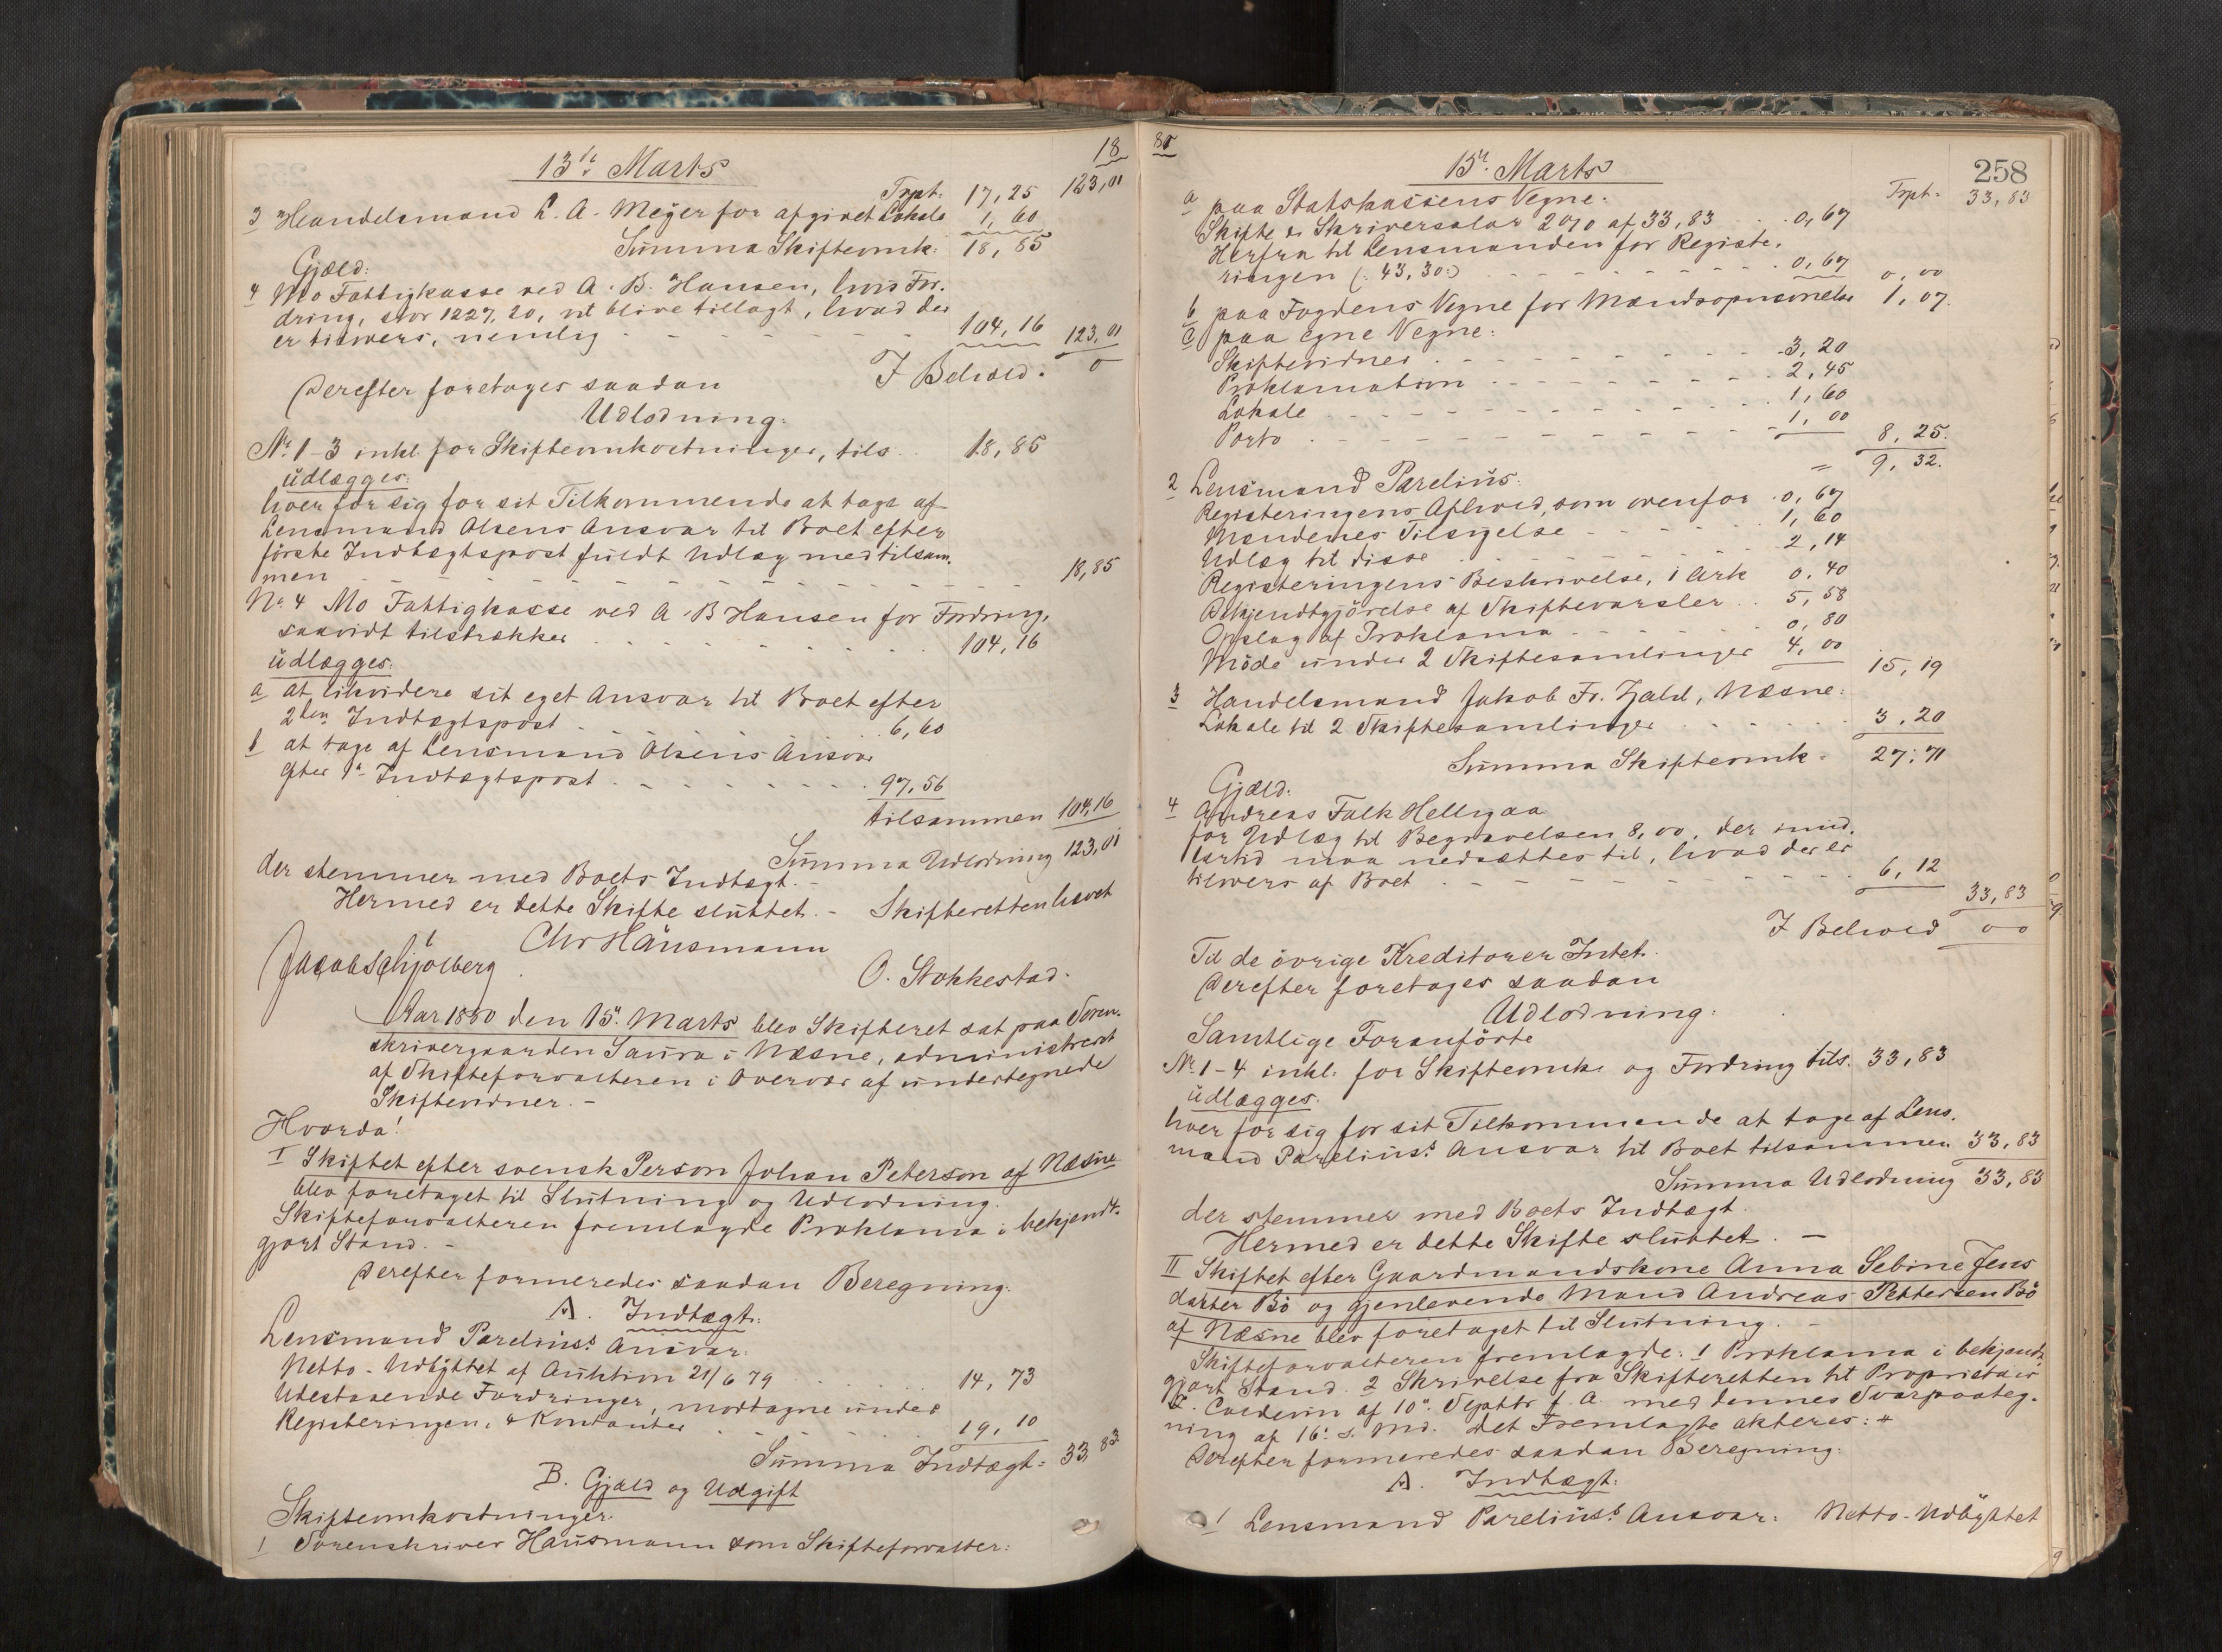 18
13de Marts
Trpt. 17,25 123,01
3 Handelsmand L. A. Meyer for afgivet Lokale 1,60
Summa Skifteomk. 18,85
Gjæld:
4 Mo Fattigkasse ved A. B. Hansen, hvis For-
dring, stor 1227,20, vil blive tillagt, hvad der
er tilovers, nemlig 104,16 123,01
I Behold. 0
Derefter foretoges saadan
Udlodning:
No 1-3 inkl. for Skifteomkostninger, tils. 18,85
udlægges:
hver for sig for sit Tilkommende at tage af
Lensmand Olsens Ansvar til Boet efter
første Indtægtspost fuldt Udlæg med tilsam-
men 18,85
No 4 Mo Fattigkasse ved A. B Hansen for Fordring,
saavidt tilstrækker 104,16
udlægges:
a at likvidere sit eget Ansvar til Boet efter
2den Indtægtspost 6,60
b at tage af Lensmand Olsens Ansvar
efter 1ste Indtægtspost 97,56
tilsammen 104,16
Summa Udlodning 123,01
der stemmer med Boets Indtægt.
Hermed er dette Skifte sluttet. - Skifteretten hævet
Chr Hausmann
Jacob Schjølberg
O. Stokkestad.
Aar 1880 den 15de Marts blev Skifteret sat paa Soren-
skrivergaarden Saura i Næsne, administreret
af Skifteforvalteren i Overvær af undertegnede
Skiftevidner. -
Hvorda!
I Skiftet efter svensk Person Johan Peterson af Næsne
blev foretaget til Slutning og Udlodning.
Skifteforvalteren fremlagde Proklama i bekjendt-
gjort Stand. -
Derefter formeredes saadan Beregning:
A. Indtægt:
Lensmand Parelius's Ansvar:
Netto-Udbyttet af Auktion 21/6 79 14,73
Udestaaende Fordringer, modtagne under
Registeringen, & Kontanter 19,10
Summa Indtægt: 33,83
B. Gjæld og Udgift
Skifteomkostninger:
1 Sorenskriver Hausmann som Skifteforvalter:
80
15de Marts
258
Trpt. 33,83
a paa Statskassens Vegne:
Skifte & Skriversalær 2% af 33,83 0,67
Herfra til Lensmanden for Registe-
ringen (: 43,30:) 0,67 0,00
b paa Fogdens Vegne for Mændsopnævnelse 1,07.
c paa egne Vegne:
Skiftevidner 3,20
Proklamation 2,45
Lokale 1,60
Porto 1,00
8,25.
= 9,32.
2 Lensmand Parelius:
Registeringens Afhold, som ovenfor 0,67
Mændenes Tilsigelse 1,60
Udlæg til disse 2,14
Registeringens Beskrivelse, 1 Ark 0,40
Bekjendtgjørelse af Skiftevarsler 5,58
Opslag af Proklama 0,80
Møde under 2 Skiftesamlinger 4,00
15,19
3 Handelsmand Jakob Fr. Zahl, Næsne:
Lokale til 2 Skiftesamlinger 3,20
Summa Skifteomk. 27,71
Gjæld:
4 Andreas Falk Hellgaa
for Udlæg til Begravelsen 8,00, der imid-
lertid maa nedsættes til, hvad der er
tilovers af Boet 6,12
33,83
I Behold 00
Til de øvrige Kreditorer Intet.
Derefter foretoges saadan
Udlodning:
Samtlige Foranførte
No 1-4 inkl. for Skifteomk. og Fordring tils. 33,83
udlægges:
hver for sig for sit Tilkommende at tage af Lens-
mand Parelius's Ansvar til Boet tilsammen 33,83
Summa Udlodning 33,83
der stemmer med Boets Indtægt.
Hermed er dette Skifte sluttet. -
II Skiftet efter Gaardmandskone Anna Sebine Jens
datter Bø og gjenlevende Mand Andreas Pettersen Bø
af Næsne blev foretaget til Slutning. -
Skifteforvalteren fremlagde: 1 Proklama i bekjendt-
gjort Stand. 2 Skrivelse fra Skifteretten til Proprietair
Coldevin af 10de Septbr f. A. med dennes Svarpaateg-
ning af 16de s. Md. Det Fremlagte akteres:
Derefter formeredes saadan Beregning:
A. Indtægt:
1 Lensmand Parelius's Ansvar: Netto-Udbyttet